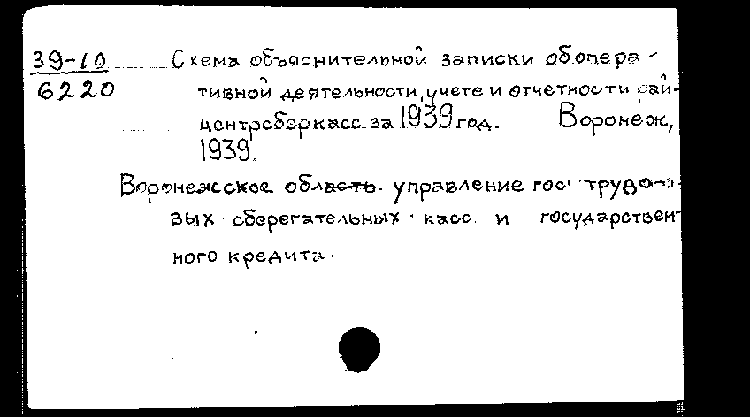 39-10 Схема объяснительной записки об опера-
6220 тивной деятельности, учете и отчетности рай-
центрсберкасс за 1939 год. Воронеж,
1939.
Воронежское область управление гос трудо-
вых сберегательных касс и государствен
ного кредита.